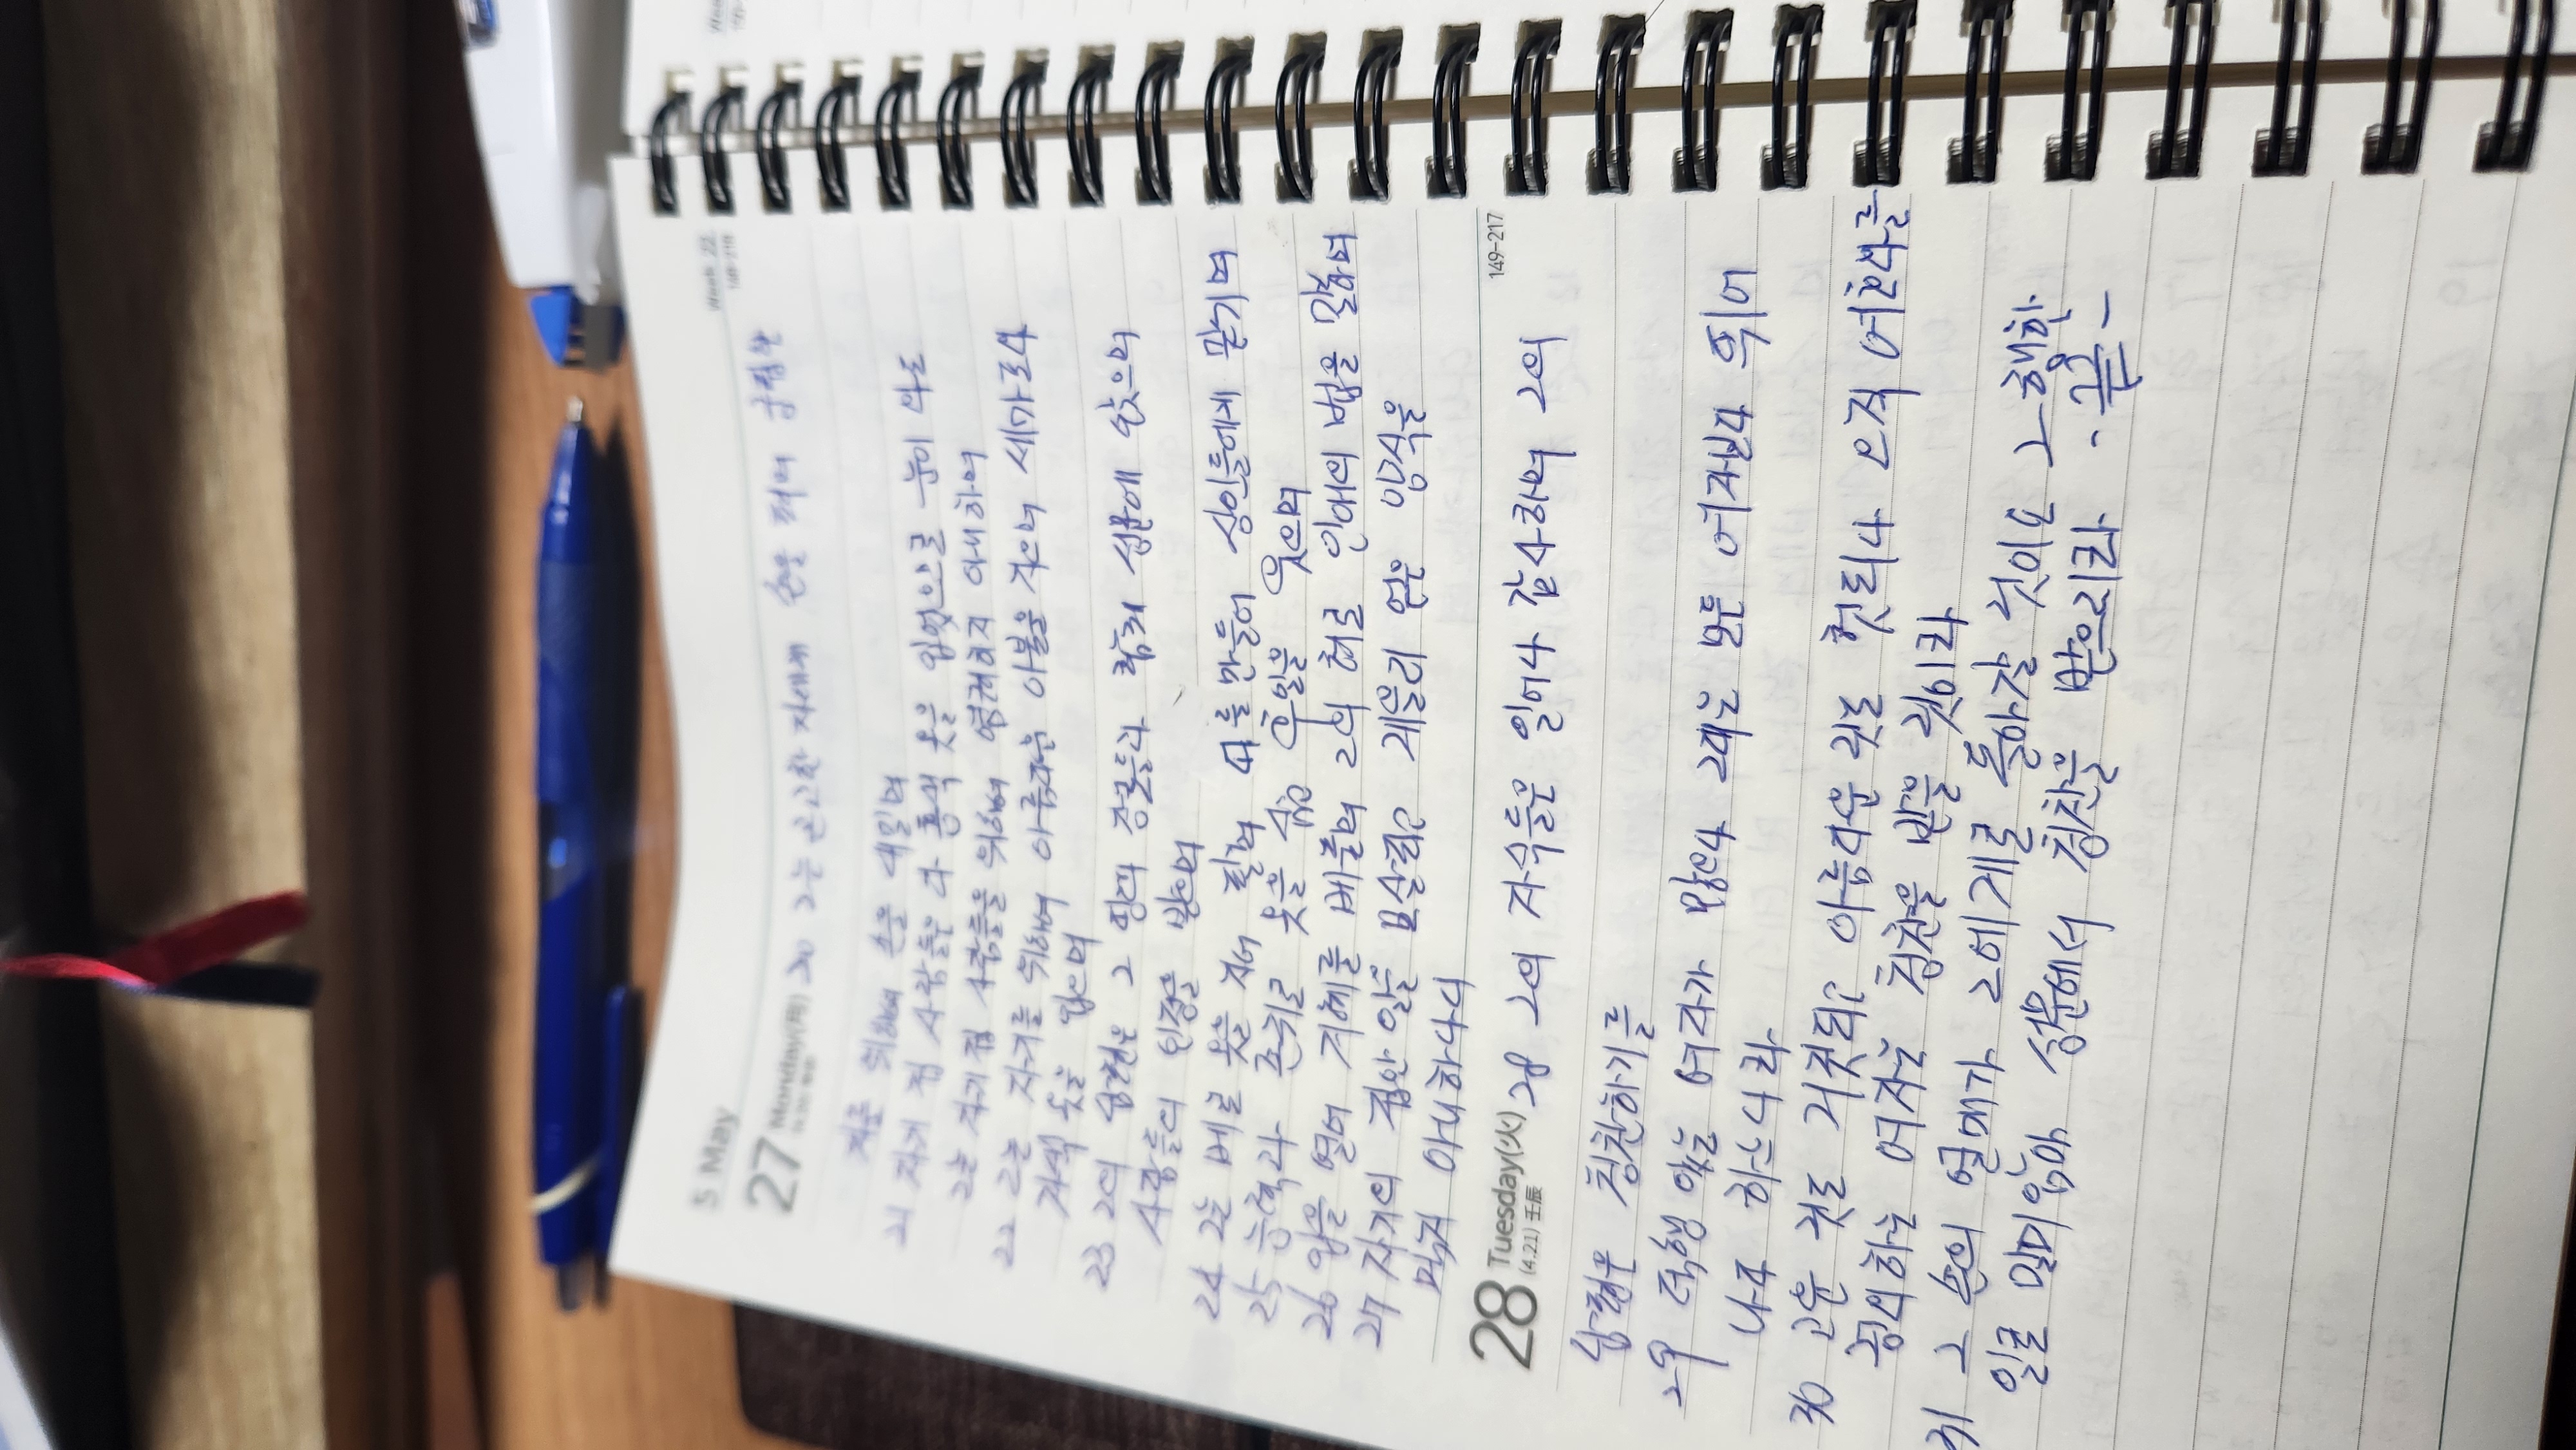 5 May
Week 22
148-218
27 Monday(月) 20 그는 곤고한 자에게 손을 펴며 궁핍한
자를 위하여 손을 내밀며
21 자기 집 사람들은 다 홍색 옷을 입었으므로 눈이 와도
그는 자기 집 사람들을 위하여 염려하지 아니하며
22 그는 자기를 위하여 아름다운 이불을 지으며 세마포와
자색 옷을 입으며
23 그의 남편은 그 땅의 장로들과 함께 성문에 앉으며
사람들의 인정을 받으며
24 그는 베로 옷을 지어 팔며 띠를 만들어 상인들에게 맡기며
25 능력과 존귀로 옷을 삼고 후일을 웃으며
26 입을 열어 지혜를 베풀며 그의 혀로 인애의 법을 말하며
27 자기의 집안 일을 보살피고 게을리 얻은 양식을
먹지 아니하나니
149-217
28 Tuesday(火) 28 그의 자식들은 일어나 감사하며 그의
(4.21) 壬辰
남편은 칭찬하기를
29 덕행 있는 여자가 많으나 그대는 모든 여자보다 뛰어
나다 하느니라
30 고운 것도 거짓되고 아름다운 것도 헛되나 오직 여호와를
경외하는 여자는 칭찬을 받을 것이라
31 그 손의 열매가 그에게로 돌아갈 것이요 그 행한
일로 말미암아 성문에서 칭찬을 받으리라 - 끝 -